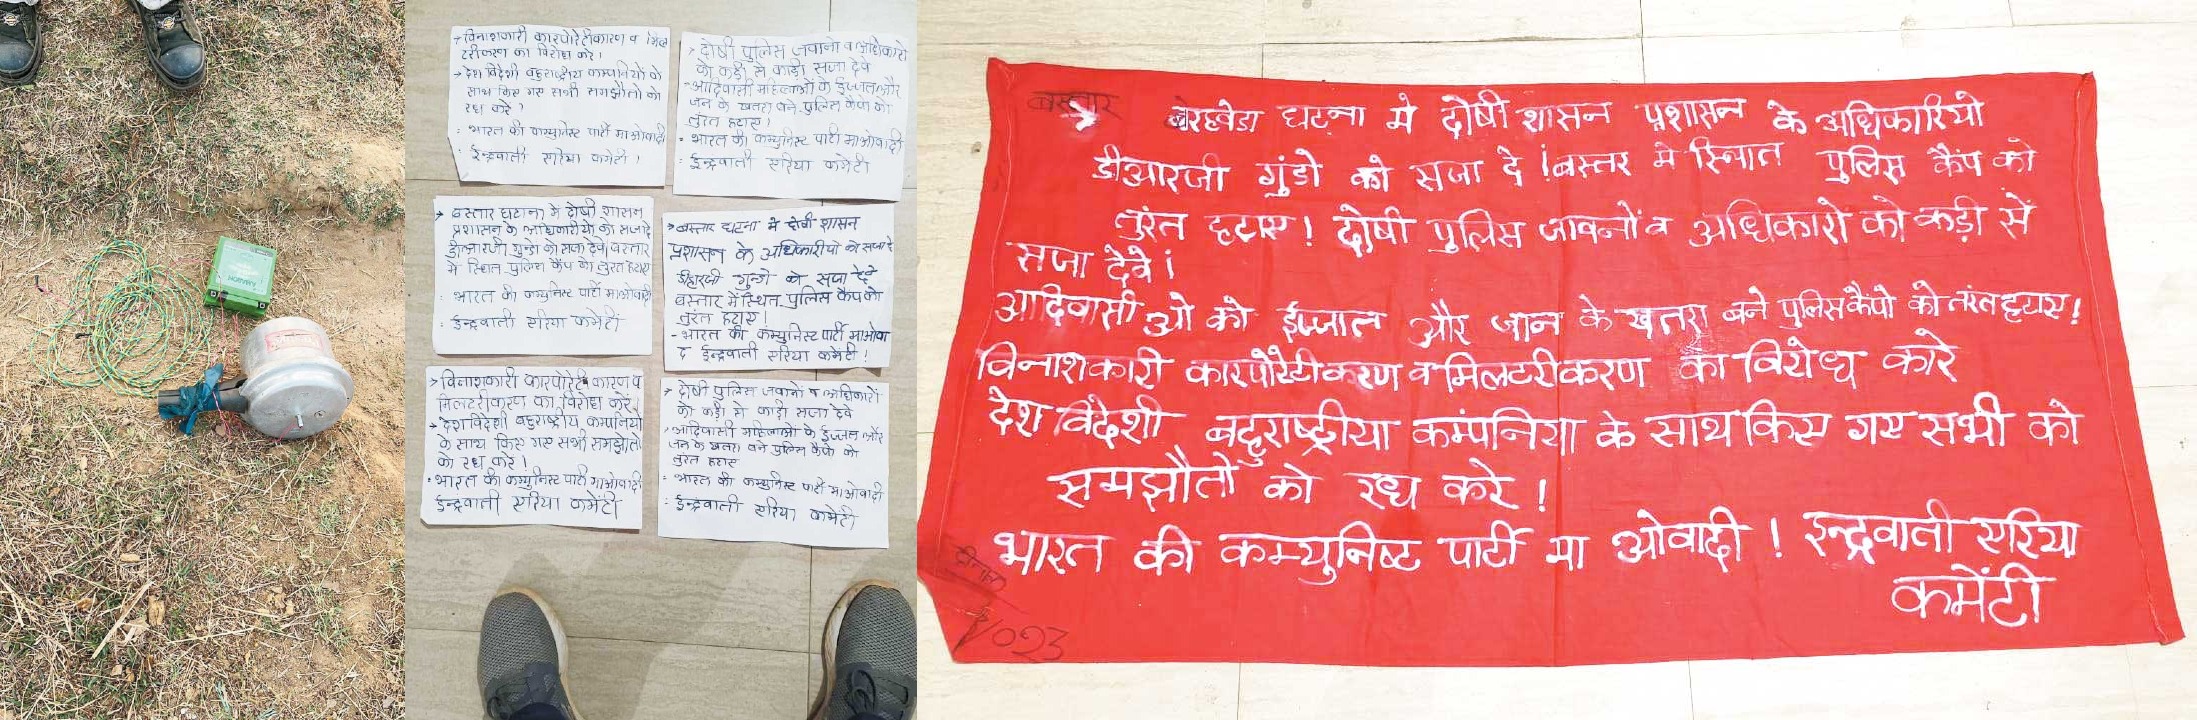 → विनाशकारी कारपोरेटीकारण व मिल
टरीकरण का विरोध करे।
→ देश विदेशी बहुराष्ट्रीय कम्पनियों के
साथ किए गए सभी समझौतो को
रध करे!
: भारत की कम्युनिस्ट पार्टी माओवादी
: ईन्द्रवाती एरिया कमेटी!
- दोषी पुलिस जवानो व अधिकारो
को कड़ी से काड़ी सजा देवे
- आदिवासी महिलाओ के ईज्जत और
जन के खतरा बने पुलिस कैंपो को
तुरंत हटाए!
- भारत की कम्युनिस्ट पार्टी माओवादी
: ईन्द्रवाती एरिया कमेटी
→ बस्तार घटाना मे दोषी शासन
प्रशासन के अधिकारीयो को सजा दे
डीआरजी गुन्डो को सजा देवे। बस्तार
मे स्थित पुलिस कैंप को तुरंत हटाए
: भारत की कम्युनिस्ट पार्टी माओवादी
: ईन्द्रवाती एरिया कमेटी
→ बस्तार घटना मे दोषी शासन
प्रशासन के अधिकारीयो को सजा दे
डीआरजी गुन्डो को सजा देवे
बस्तार में स्थित पुलिस कैंप को
तुरंत हटाए!
- भारत की कम्युनिस्ट पार्टी माओवा
द ईन्द्रवाती एरिया कमेटी!
→ विनाशकारी कारपोरेटी कारण व
मिलटरीकरण का विरोध करे।
→ देश विदेशी बहुराष्ट्रीय कम्पनियो
के साथ किए गए सभी समझौतो
को रध करे।
· भारत की कम्युनिस्ट पार्टी माओवादी
ईन्द्रवाती एरिया कमेंटी
→ दोषी पुलिस जवानो व अधिकारो
को कड़ी से काड़ी सजा देवे
→ आदिवासी महिलाओ के ईज्जत और
जन के खतरा बने पुलिस कैंपो को
तुरंत हटाए
: भारत की कम्युनिस्ट पार्टी माओवादी
: ईन्द्रवाती एरिया कमेटी
बस्तार बेरहवेडा घटना मे दोषी शासन प्रशासन के अधिकारियो
डीआरजी गुंडो को सजा दे! बस्तर मे स्थित पुलिस कैंप को
तुरंत हटाए! दोषी पुलिस जावनो व अधिकारो को कड़ी सें
सजा देवे।
आदिवासी ओ को ईज्जात और जान के खतरा बने पुलिस कैंपो को तंरत हटाए!
विनाशकारी कारपोरेटीकरण व मिलटरीकरण का विरोध कारे
देश विदेशी बहुराष्ट्रीया कम्पंनिया के साथ किए गए सभी को
समझौतो को रध करे!
भारत की कम्युनिष्ट पार्टी मा ओवादी! इन्द्रवाती एरिया
कमेंटी